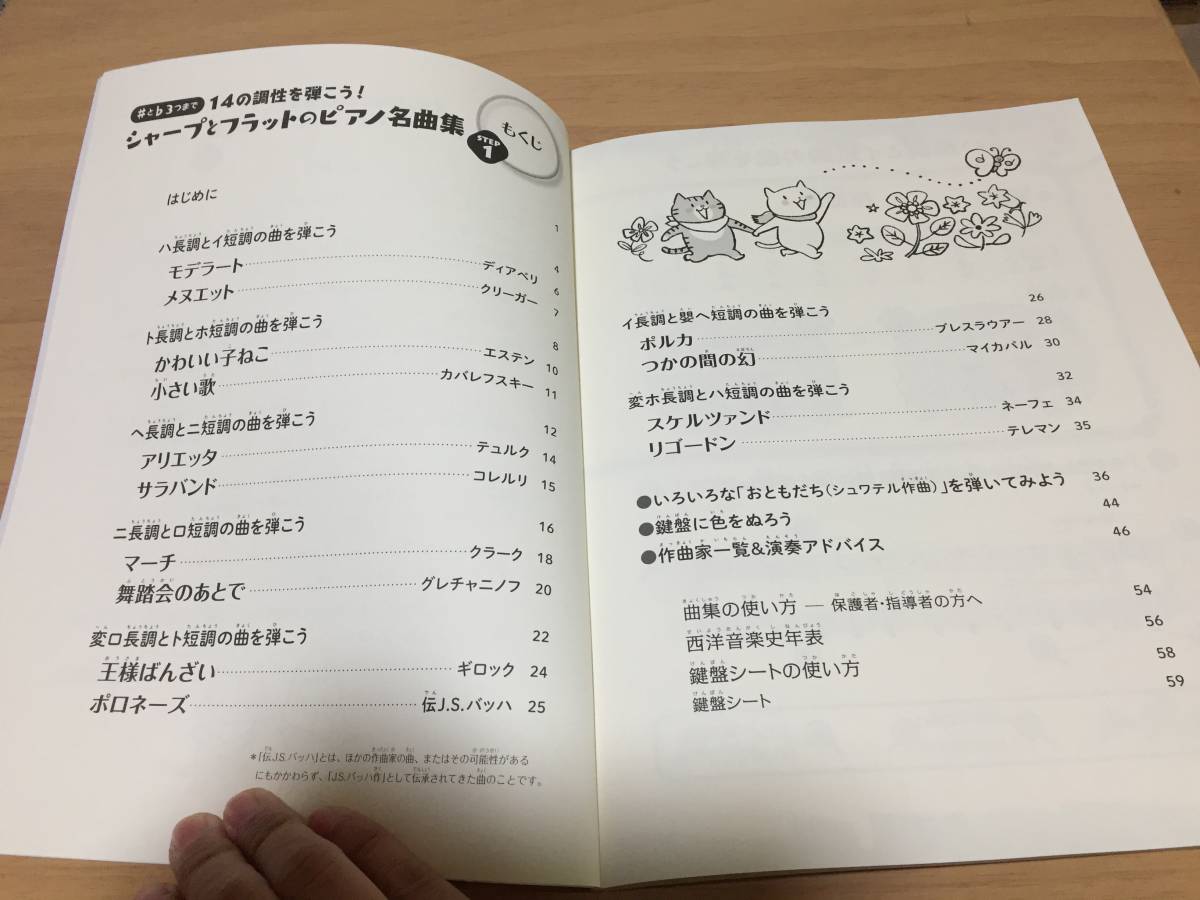 ♯と♭3つまで 14の調性を弾こう!
シャープとフラットのピアノ名曲集 STEP 1
もくじ
はじめに 1
ハ長調とイ短調の曲を弾こう 4
モデラート ディアベリ 6
メヌエット クリーガー 7
ト長調とホ短調の曲を弾こう 8
かわいい子ねこ エステン 10
小さい歌 カバレフスキー 11
ヘ長調とニ短調の曲を弾こう 12
アリエッタ テュルク 14
サラバンド コレルリ 15
ニ長調とロ短調の曲を弾こう 16
マーチ クラーク 18
舞踏会のあとで グレチャニノフ 20
変ロ長調とト短調の曲を弾こう 22
王様ばんざい ギロック 24
ポロネーズ 伝J.S.バッハ 25
*「伝J.S.バッハ」とは、ほかの作曲家の曲、またはその可能性がある
にもかかわらず、「J.S.バッハ作」として伝承されてきた曲のことです。
イ長調と嬰ヘ短調の曲を弾こう 26
ポルカ ブレスラウアー 28
つかの間の幻 マイカパル 30
変ホ長調とハ短調の曲を弾こう 32
スケルツァンド ネーフェ 34
リゴードン テレマン 35
●いろいろな「おともだち(シュワテル作曲)」を弾いてみよう 36
●鍵盤に色をぬろう 44
●作曲家一覧&演奏アドバイス 46
曲集の使い方 ― 保護者・指導者の方へ 54
西洋音楽史年表 56
鍵盤シートの使い方 58
鍵盤シート 59